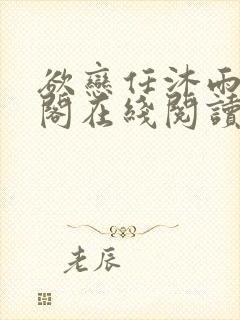 欲戀任沐雨
閣在綫閱讀
老辰